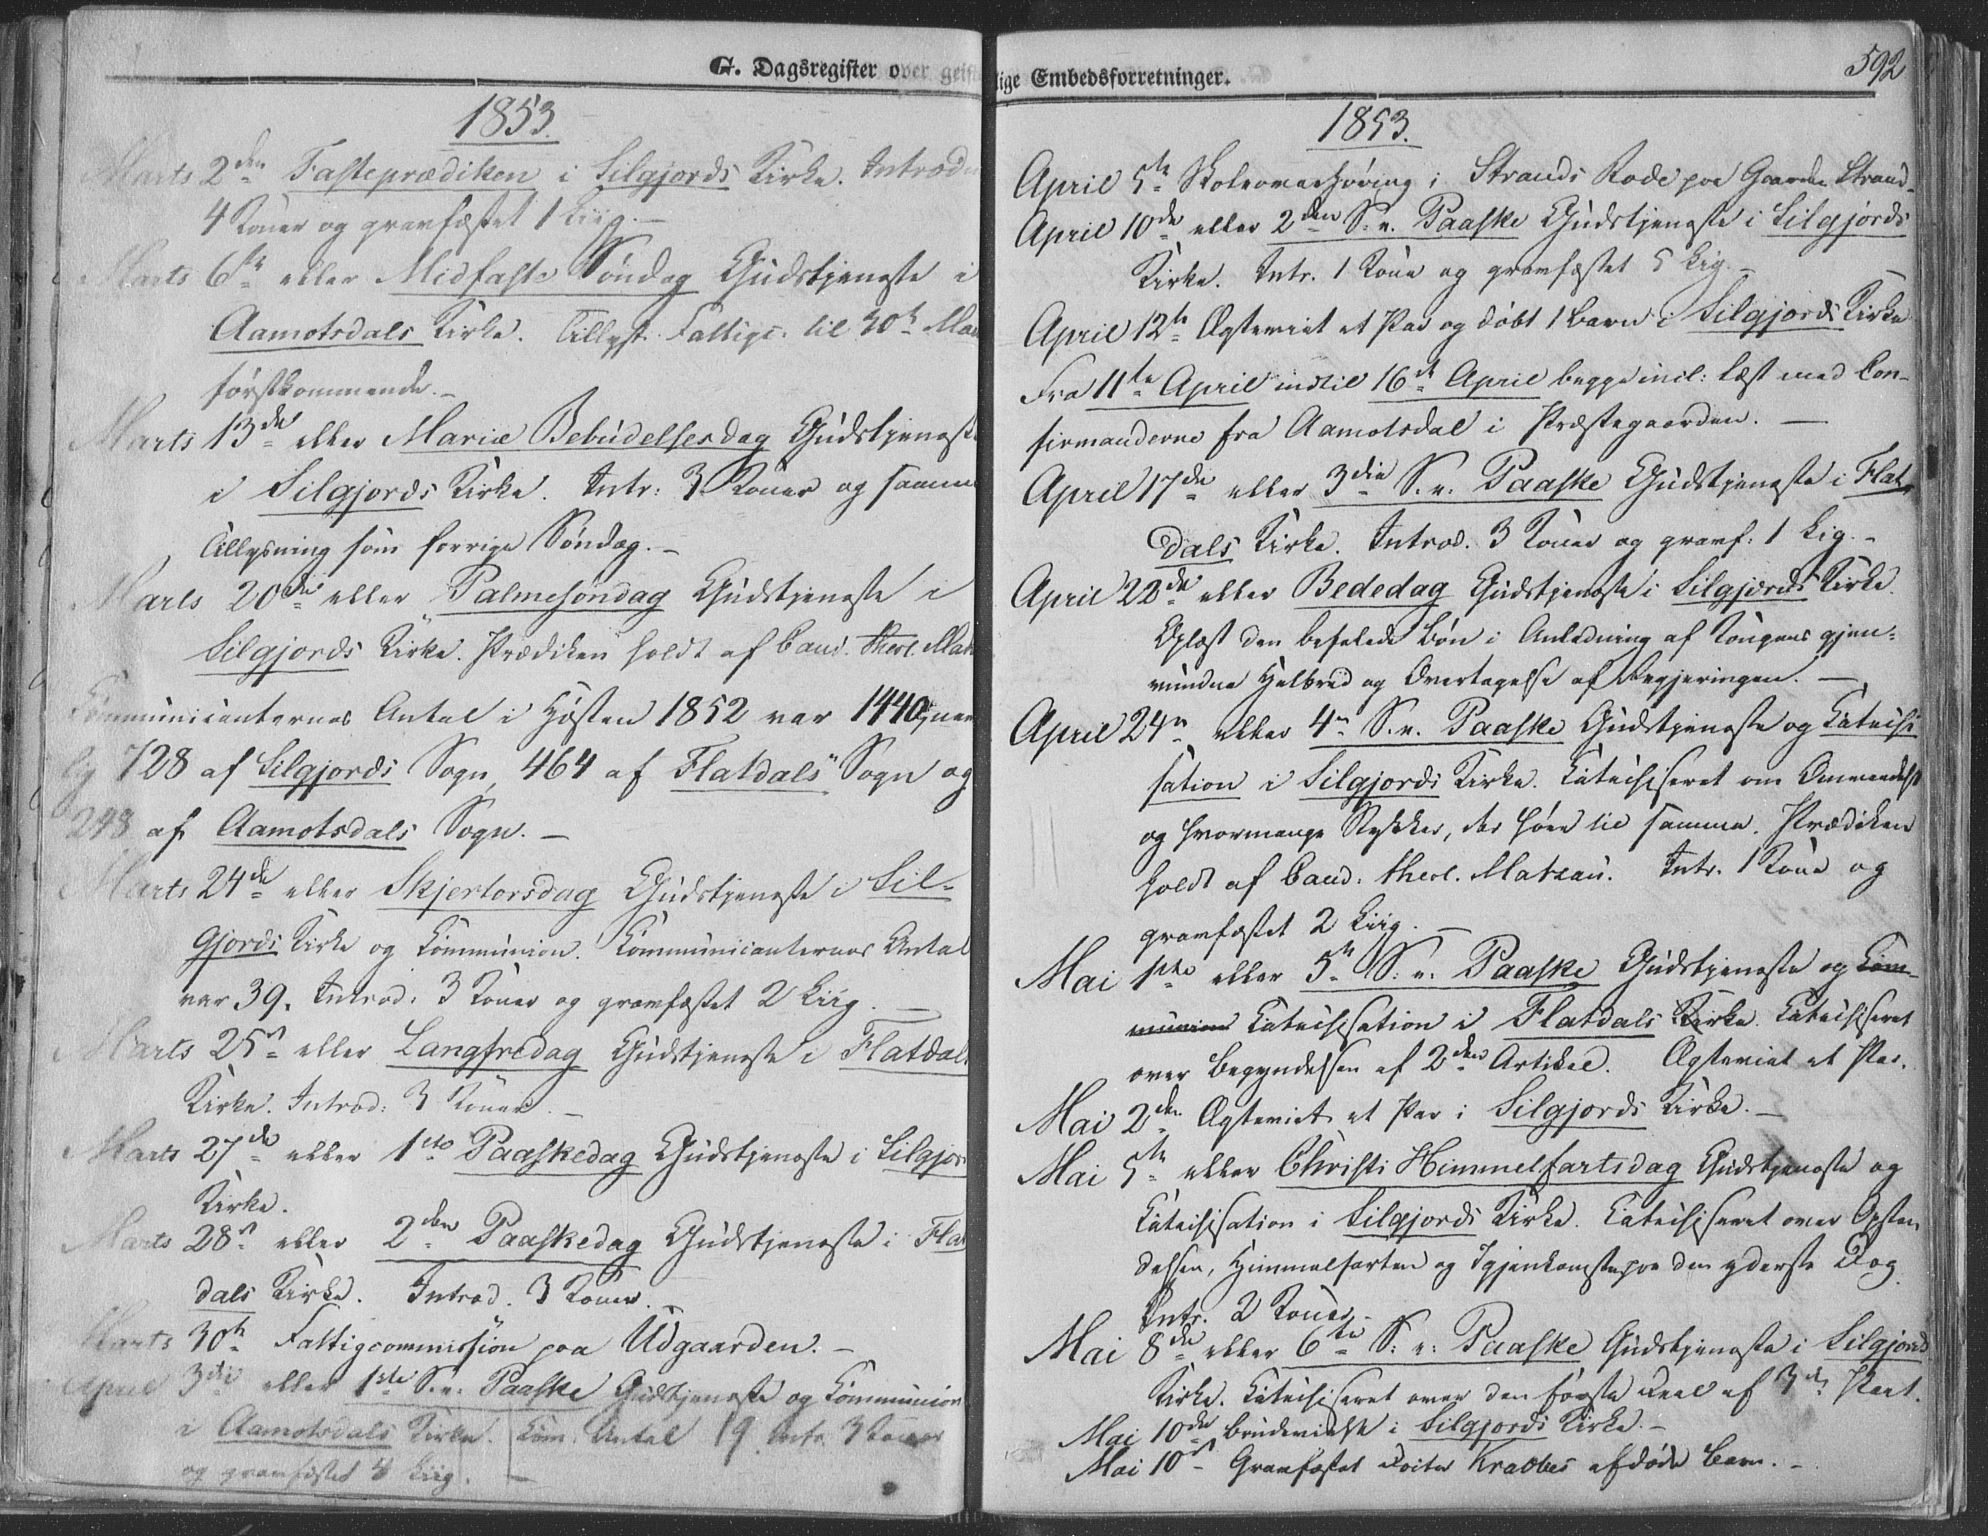 G. Dagsregister over geist
1853.
Marts 2den Fasteprædiken i Silgjords Kirke. Introd
4 Koner og gravfæstet 1 Liig. —
Marts 6te eller Midfaste Søndag Gudstjeneste i
Aamotsdals Kirke. Tillyst Fattigc. til 30te Mar
førstkommende. —
Marts 13de eller Mariæ Bebudelsesdag Gudstjeneste
i Silgjords Kirke. Intr: 3 Koner og samme
Tillysning som forrige Søndag. —
Marts 20de eller Palmesøndag Gudstjeneste i
Silgjords Kirke. Prædiken holdt af Cand. theol. Mat
Communicanternes Antal i Høsten 1852 var 1440, nem
lig 728 af Silgjords Sogn, 464 af Flatdals Sogn og
248 af Aamotsdals Sogn. —
Marts 24de eller Skjertorsdag Gudstjeneste i Sil-
gjords Kirke og Communion. Communicanternes Antal
var 39. Introd: 3 Koner og gravfæstet 2 Liig. —
Marts 25de eller Langfredag Gudstjeneste i Flatdals
Kirke. Introd: 3 Koner. —
Marts 27de eller 1ste Paaskedag Gudstjeneste i Silgjor
Kirke.
Marts 28de eller 2den Paaskedag Gudstjeneste i Flat
dals Kirke. Introd. 3 Koner.
Marts 30te Fattigcommission paa Udgaarden. —
April 3die eller 1ste S. e. Paaske Gudstjeneste og Communion
i Aamotsdals Kirke. Com. Antal 19. Intr. 3 Koner
og gravfæstet 4 Liig. —
lige Embedsforretninger.
592
1853.
April 5te Skoleoverhøring i Strands Rode paa Gaarden Strand.
April 10de eller 2den S. e. Paaske Gudstjeneste i Silgjords
Kirke. Intr. 1 Kone og gravfæstet 5 Lig. —
April 12te Ægteviet et Par og døbt 1 Barn i Silgjords Kirke
Fra 11te April indtil 16de April begge incl: læst med Con-
firmanderne fra Aamotsdal i Præstegaarden. —
April 17de eller 3die S. e. Paaske Gudstjeneste i Flat-
dals Kirke. Introd. 3 Koner og gravf: 1 Lig. —
April 22de eller Bededag Gudstjeneste i Silgjords Kirke.
Oplæst den befalede Bøn i Anledning af Kongens gjen-
vundne Helbred og Overtagelse af Regjeringen. —
April 24de eller 4de S. e. Paaske Gudstjeneste og Catechi-
sation i Silgjords Kirke. Catechiseret om Omvendelse
og hvormange Stykker, der hører til samme. Prædiken
holdt af Cand. theol. Matzau. Intr. 1 Kone og
gravfæstet 2 Liig. —
Mai 1ste eller 5te S. e. Paaske Gudstjeneste og Com-
munion Catechisation i Flatdals Kirke. Catechiseret
over Begyndelsen af 2den Artikel. Ægteviet et Par.
Mai 2den Ægteviet et Par i Silgjords Kirke. —
Mai 5te eller Christi Himmelfartsdag Gudstjeneste og
Catechisation i Silgjords Kirke. Catechiseret over Opstan
delsen, Himmelfarten og Igjenkomsten paa den yderste Dag
Intr. 2 Koner. —
Mai 8de eller 6te S. e. Paaske Gudstjeneste i Silgjords
Kirke. Catechiseret over den første Deel af 3die Part.
Mai 10de Brudevielse i Silgjords Kirke. —
Mai 10de Gravfæstet Krabbes afdøde Barn. —